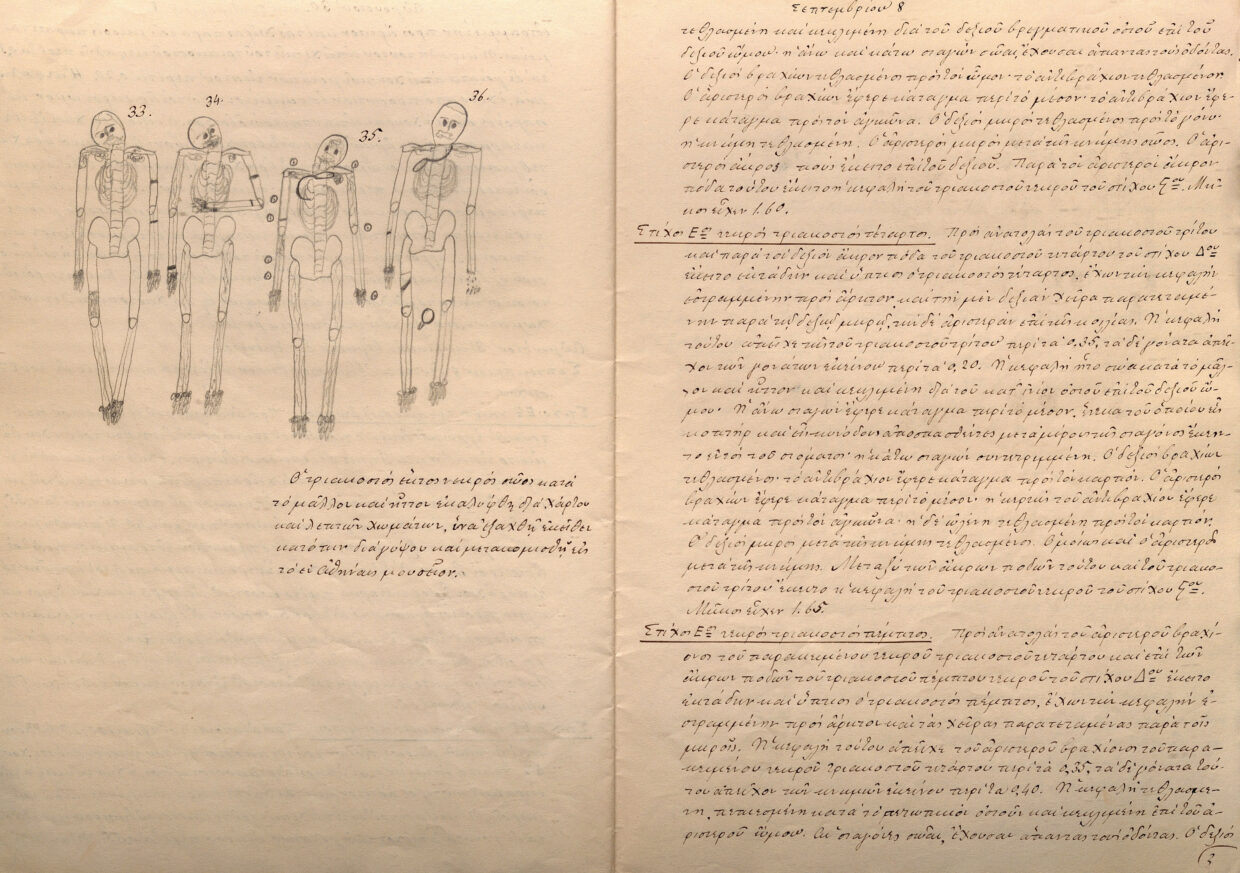 33.
34.
35.
36.
Ὁ τριακοστὸς ἕκτος νεκρὸς σῶος κατὰ
τὸ μᾶλλον καὶ ἧττον ἐκαλύφθη διὰ χάρτου
καὶ λεπτῶν χωμάτων, ἵνα ἐξαχθῇ ἐκεῖθεν
κατόπιν διὰ γύψου καὶ μετακομισθῇ εἰς
τὸ ἐν Ἀθήναις μουσεῖον.
Σεπτεμβρίου 8
τεθλασμένη καὶ κεκλιμένη διὰ τοῦ δεξιοῦ βρεγματικοῦ ὀστοῦ ἐπὶ τοῦ
δεξιοῦ ὤμου· ἡ ἄνω καὶ κάτω σιαγὼν σῶαι, ἔχουσαι ἅπαντας τοὺς ὀδόντας.
Ὁ δεξιὸς βραχίων τεθλασμένος πρὸς τὸν ὦμον· τὸ ἀντιβράχιον τεθλασμένον.
Ὁ ἀριστερὸς βραχίων ἔφερε κάταγμα περὶ τὸ μέσον· τὸ ἀντιβράχιον ἔφε-
ρε κάταγμα πρὸς τὸν ἀγκῶνα. Ὁ δεξιὸς μηρὸς τεθλασμένος πρὸς τὸ γόνυ·
ἡ κνήμη τεθλασμένη. Ὁ ἀριστερὸς μηρὸς μετὰ τῆς κνήμης σῶος. Ὁ ἀρι-
στερὸς ἄκρος πους ἔκειτο ἐπὶ τοῦ δεξιοῦ. Παρὰ τὸν ἀριστερὸν ἄκρον
πόδα τούτου ἔκειτο ἡ κεφαλὴ τοῦ τριακοστοῦ νεκροῦ τοῦ στίχου Ϛου. Μῆ-
κος εἶχεν 1.60.
Στίχος Εος νεκρὸς τριακοστὸς τέταρτος. Πρὸς ἀνατολὰς τοῦ τριακοστοῦ τρίτου
καὶ παρὰ τὸν δεξιὸν ἄκρον πόδα τοῦ τριακοστοῦ τετάρτου τοῦ στίχου Δου
ἔκειτο ἐκτάδην καὶ ὕπτιος ὁ τριακοστὸς τέταρτος, ἔχων τὴν κεφαλὴν
ἐστραμμένην πρὸς ἄρκτον καὶ τὴν μὲν δεξιὰν χεῖρα παρατεταμέ-
νην παρὰ τῷ δεξιῷ μηρῷ, τὴν δὲ ἀριστερὰν ἐπὶ τῆς κοιλίας. Ἡ κεφαλὴ
τούτου ἀπεῖχε τῆς τοῦ τριακοστοῦ τρίτου περίτα 0,35, τὰ δὲ γόνατα ἀπεῖ-
χον τῶν γονάτων ἐκείνου περίτα 0,20. Ἡ κεφαλὴ ἦτο σῶα κατὰ τὸ μᾶλ-
λον καὶ ἧττον καὶ κεκλιμένη διὰ τοῦ κατ' ἰνίον ὀστοῦ ἐπὶ τοῦ δεξιοῦ ὤ-
μου· Ἡ ἄνω σιαγὼν ἔφερε κάταγμα περὶ τὸ μέσον, ἕνεκα τοῦ ὁποίου εἷς
κοπτὴρ καὶ εἷς κυνόδους ἀποσπασθέντες μετὰ μέρους τῆς σιαγόνος ἔκειν-
το ἐντὸς τοῦ στόματος· ἡ κάτω σιαγὼν συντετριμμένη. Ὁ δεξιὸς βραχίων
τεθλασμένος· τὸ ἀντιβράχιον ἔφερε κάταγμα πρὸς τὸν καρπόν. Ὁ ἀριστερὸς
βραχίων ἔφερε κάταγμα περὶ τὸ μέσον· ἡ κερκὶς τοῦ ἀντιβραχίου ἔφερε
κάταγμα πρὸς τὸν ἀγκῶνα· ἡ δὲ ὠλένη τεθλασμένη πρὸς τὸν καρπόν.
Ὁ δεξιὸς μηρὸς μετὰ τῆς κνήμης τεθλασμένος. Ὁμοίως καὶ ὁ ἀριστερὸς
μετὰ τῆς κνήμης. Μεταξὺ τῶν ἄκρων ποδῶν τούτου καὶ τοῦ τριακο-
στοῦ τρίτου ἔκειτο ἡ κεφαλὴ τοῦ τριακοστοῦ νεκροῦ τοῦ στίχου Ϛου.
Μῆκος εἶχεν 1.65.
Στίχος Εος νεκρὸς τριακοστὸς πέμπτος. Πρὸς ἀνατολὰς τοῦ ἀριστεροῦ βραχί-
ονος τοῦ παρακειμένου νεκροῦ τριακοστοῦ τετάρτου καὶ ἐπὶ τῶν
ἄκρων ποδῶν τοῦ τριακοστοῦ πέμπτου νεκροῦ τοῦ στίχου Δου ἔκειτο
ἐκτάδην καὶ ὕπτιος ὁ τριακοστὸς πέμπτος, ἔχων τὴν κεφαλὴν ἐ-
στραμμένην πρὸς ἄρκτον καὶ τὰς χεῖρας παρατεταμένας παρὰ τοῖς
μηροῖς. Ἡ κεφαλὴ τούτου ἀπεῖχε τοῦ ἀριστεροῦ βραχίονος τοῦ παρα-
κειμένου νεκροῦ τριακοστοῦ τετάρτου περίτα 0,35, τὰ δὲ γόνατα τού-
του ἀπεῖχον τῶν κνημῶν ἐκείνου περίτα 0,40. Ἡ κεφαλὴ τεθλασμέ-
νη, πεπιεσμένη κατὰ τὸ μετωπικὸν ὀστοῦν καὶ κεκλιμένη ἐπὶ τοῦ ἀ-
ριστεροῦ ὤμου. Αἱ σιαγόνες σῶαι, ἔχουσαι ἅπαντας τοὺς ὀδόντας. Ὁ δεξιὸς